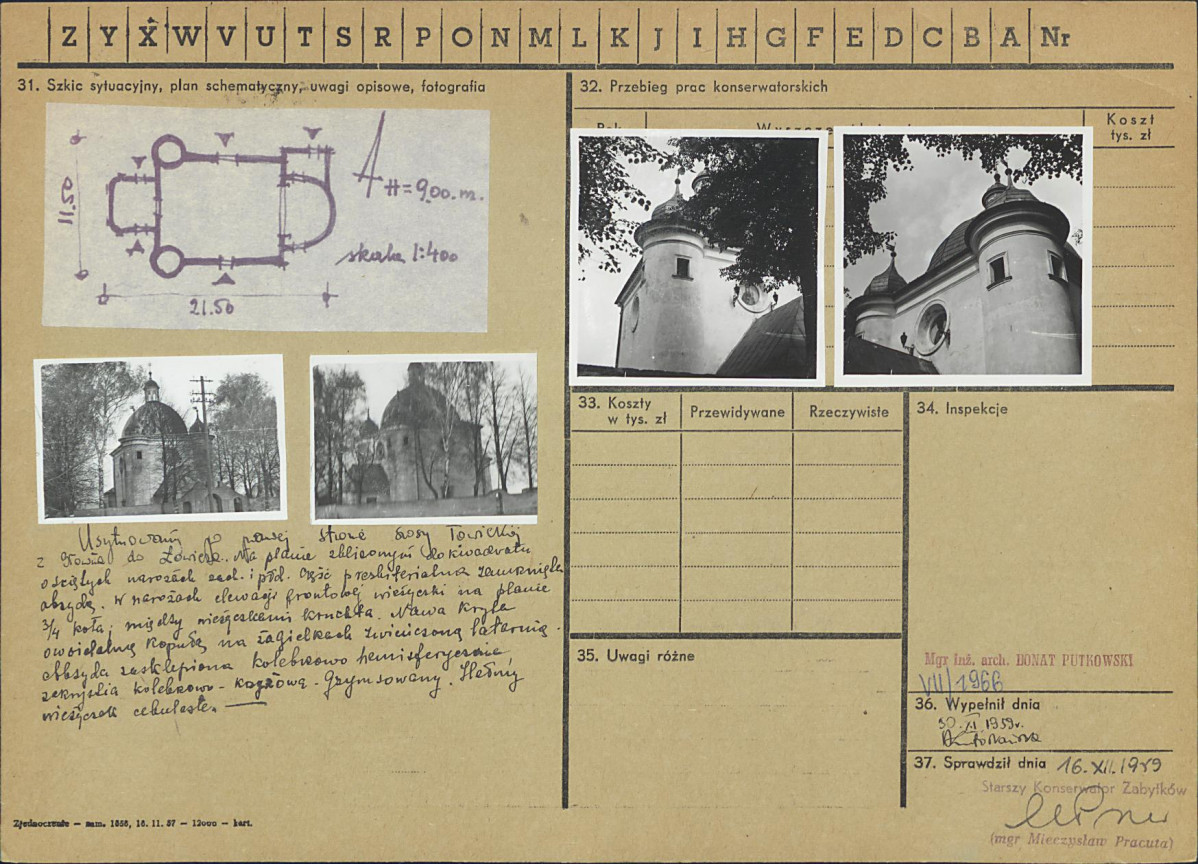 Z Y X W V U T S R P O N M L K J I H G F E D C B A Nr
31. Szkic sytuacyjny, plan schematyczny, uwagi opisowe, fotografia
11.50
H = 9,00. m.
skala 1:400
21.50
Usytuowany po prawej stronie szosy
z Głowna do Łowicza. Na planie zbliżonym do kwadratu
o ściętych narożach zach. i płd. Część prezbiterialna zamknięta
absydą. W narożach elewacji frontowej wieżyczki na planie
3/4 koła; między wieżyczkami kruchta. Nawa kryta
owoidalną kopułą na żagielkach zwieńczoną latarnią.
Absyda zasklepiona kolebkowo hemisferycznie
zakrystia kolebkowo - krzyżowa. Gzymsowany. Hełmy
wieżyczek cebulaste.
32. Przebieg prac konserwatorskich
Koszt
tys. zł
33. Koszty
w tys. zł
Przewidywane
Rzeczywiste
34. Inspekcje
35. Uwagi różne
Mgr inż. arch. DONAT PUTKOWSKI
VII/1966
36. Wypełnił dnia
30.XI.1959r.
37. Sprawdził dnia 16.XII.1959
Starszy Konserwator Zabytków
(mgr Mieczysław Pracuta)
Zjednoczenie — zam. 1558, 16. 11. 57 — 12000 — kart.